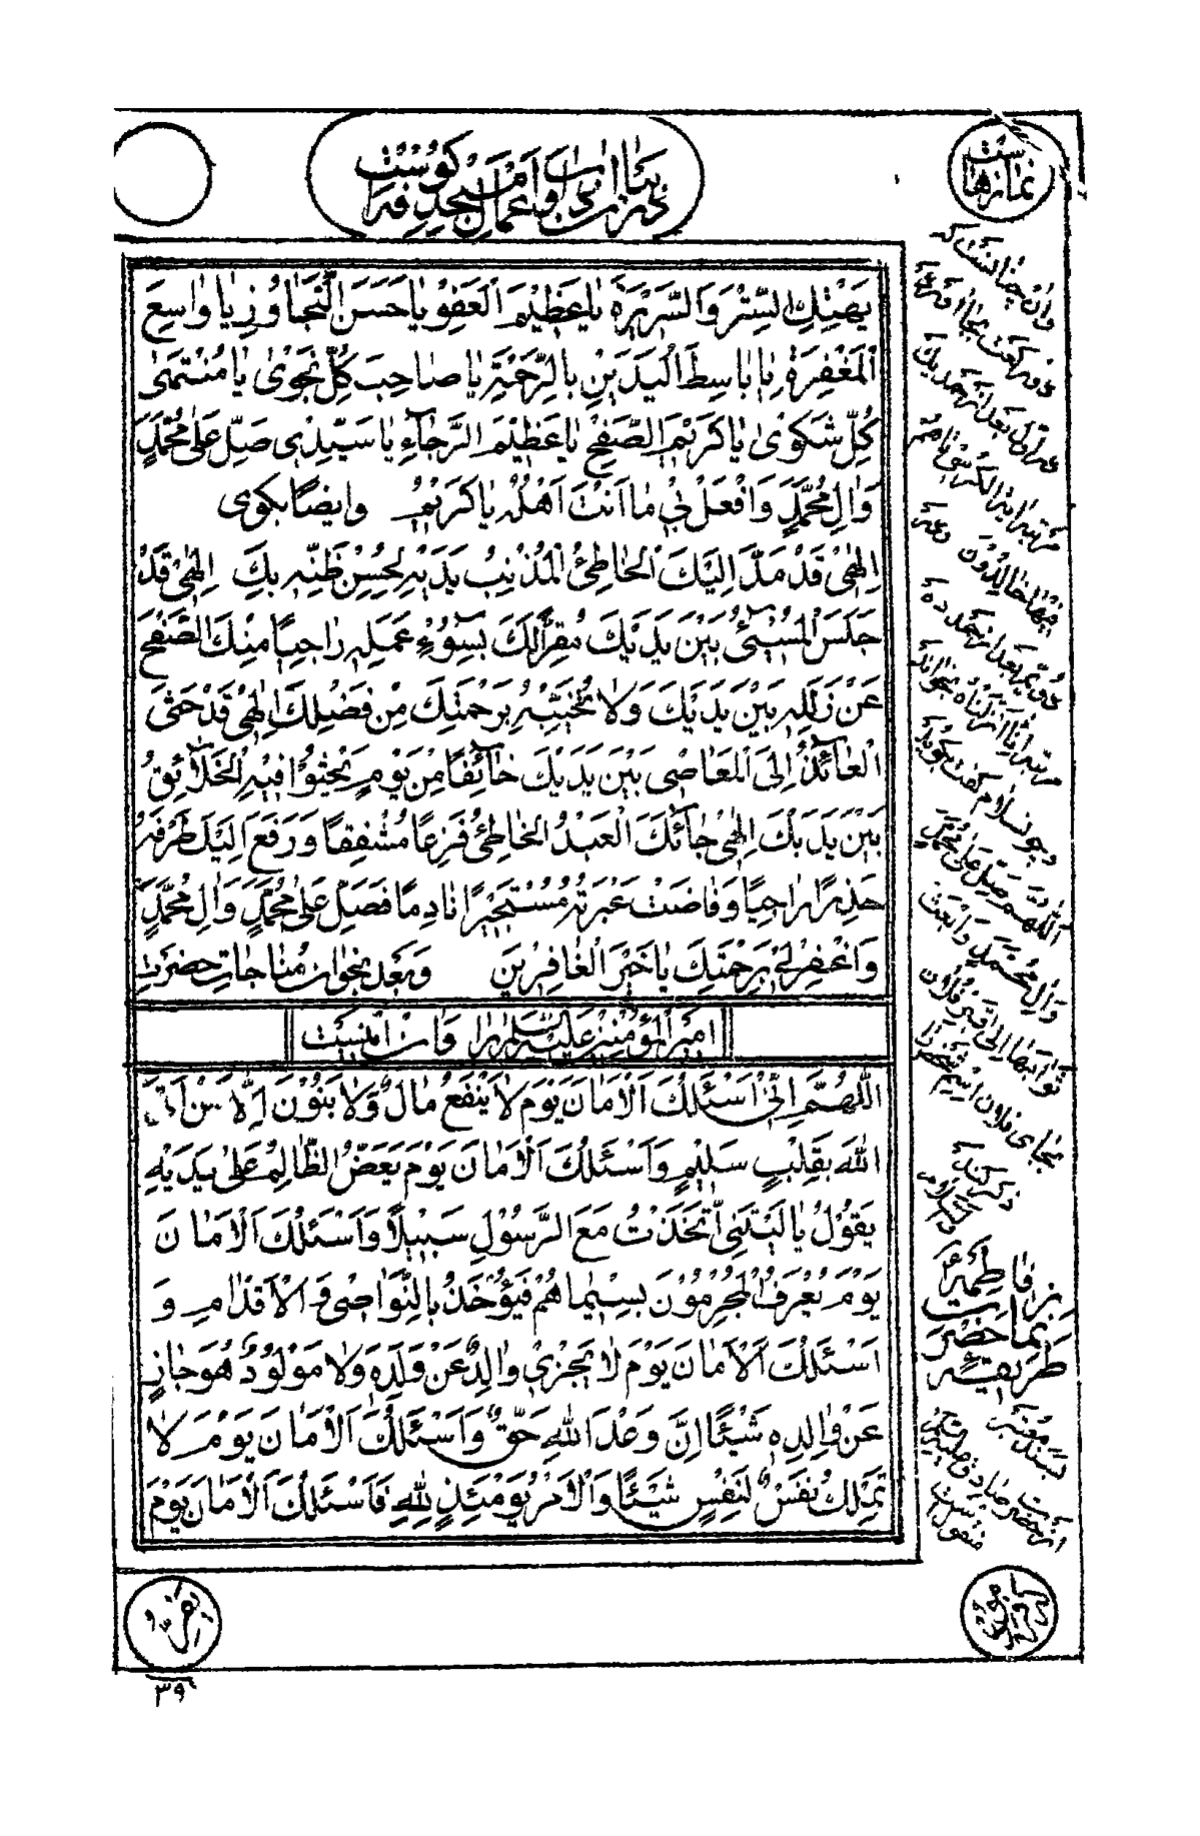 در بیان زیارات و اعمال مسجد کوفه است
نمازها است
یَهْتِكِ السِّتْرَ وَالسَّرِیْرَةَ یٰا عَظِیْمَ الْعَفْوِ یٰا حَسَنَ التَّجٰاوُزِ یٰا وٰاسِعَ
الْمَغْفِرَةِ یٰا بٰاسِطَ الْیَدَیْنِ بِالرَّحْمَةِ یٰا صٰاحِبَ كُلِّ نَجْوٰی یٰا مُنْتَهٰی
كُلِّ شَكْوٰی یٰا كَرِیْمَ الصَّفْحِ یٰا عَظِیْمَ الرَّجٰآءِ یٰا سَیِّدِی صَلِّ عَلٰی مُحَمَّدٍ
وَاٰلِ مُحَمَّدٍ وَافْعَلْ بِیْ مٰا اَنْتَ اَهْلُهُ یٰا كَرِیْمُ وایضًا بکوی
اِلٰهِیْ قَدْ مَدَّ اِلَیْكَ الْخٰاطِئُ الْمُذْنِبُ یَدَیْهِ لِحُسْنِ ظَنِّهِ بِكَ اِلٰهِیْ قَدْ
جَلَسَ الْمُسِیْئُ بَیْنَ یَدَیْكَ مُقِرًّا لَكَ بِسُوْءِ عَمَلِهِ رٰاجِیًا مِنْكَ الصَّفْحَ
عَنْ زَلَلِهِ بَیْنَ یَدَیْكَ وَلٰا تُخَیِّبْهُ بِرَحْمَتِكَ مِنْ فَضْلِكَ اِلٰهِیْ قَدْ حَثَی
الْعٰآئِذُ اِلَی الْمَعٰاصِی بَیْنَ یَدَیْكَ خٰآئِفًا مِنْ یَوْمٍ یَحْثُوْا فِیْهِ الْخَلٰآئِقُ
بَیْنَ یَدَیْكَ اِلٰهِیْ جٰآئَكَ الْعَبْدُ الْخٰاطِئُ فَزِعًا مُشْفِقًا وَرَفَعَ اِلَیْكَ طَرْفَهُ
حَذِرًا رٰاجِیًا وَفٰاضَتْ عَبْرَتُهُ مُسْتَجِیْرًا نٰادِمًا فَصَلِّ عَلٰی مُحَمَّدٍ وَاٰلِ مُحَمَّدٍ
وَاغْفِرْلِیْ بِرَحْمَتِكَ یٰا خَیْرَ الْغٰافِرِیْنَ وبعد بخوان مناجات حضرت
امیر المؤمنین علیه السلام را وان اینست
اَللّٰهُمَّ اِنِّیْ اَسْئَلُكَ الْاَمٰانَ یَوْمَ لٰا یَنْفَعُ مٰالٌ وَلٰا بَنُوْنَ اِلّٰا مَنْ اَتَی
اللّٰهَ بِقَلْبٍ سَلِیْمٍ وَاَسْئَلُكَ الْاَمٰانَ یَوْمَ یَعَضُّ الظّٰالِمُ عَلٰی یَدَیْهِ
یَقُوْلُ یٰا لَیْتَنِی اتَّخَذْتُ مَعَ الرَّسُوْلِ سَبِیْلًا وَاَسْئَلُكَ الْاَمٰانَ
یَوْمَ یُعْرَفُ الْمُجْرِمُوْنَ بِسِیْمٰاهُمْ فَیُؤْخَذُ بِالنَّوٰاصِیْ وَ الْاَقْدٰامِ وَ
اَسْئَلُكَ الْاَمٰانَ یَوْمَ لٰا یَجْزِیْ وٰالِدٌ عَنْ وَلَدِهِ وَلٰا مَوْلُوْدٌ هُوَ جٰازٍ
عَنْ وٰالِدِهِ شَیْئًا اِنَّ وَعْدَ اللّٰهِ حَقٌّ وَاَسْئَلُكَ الْاَمٰانَ یَوْمَ لٰا
تَمْلِكُ نَفْسٌ لِنَفْسٍ شَیْئًا وَالْاَمْرُ یَوْمَئِذٍ لِلّٰهِ فَاَسْئَلُكَ الْاَمٰانَ یَوْمَ
وان چنانست که
دو رکعت بجا اورد
در اول بعد از حمد یک
مرتبه ایة الکرسی تا هم
فیها خالدون و در
دویم بعد از حمد ده
مرتبه انا انزلناه بخواند
و چون سلام گفت بگوید
اللهم صل علی محمد
وال محمد وابعث
ثوابها الی قبر فلان
بجای فلان اسم شخص را
ذکر کند
والسلام
طریقه
نماز حضرت
فاطمه
بسند معتبر
از حضرت صادق
منقولست
۳۹